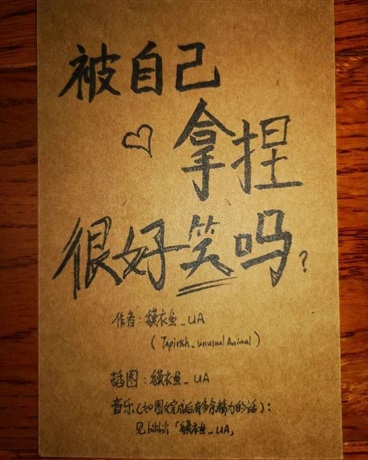 被自己
拿捏
很好笑吗?
作者:貘衣鱼_UA
(Tapirish_unusual Animal)
插图:貘衣鱼_UA
音乐(如图文完成后有多余精力的话):
见bilibili「貘衣鱼_UA」